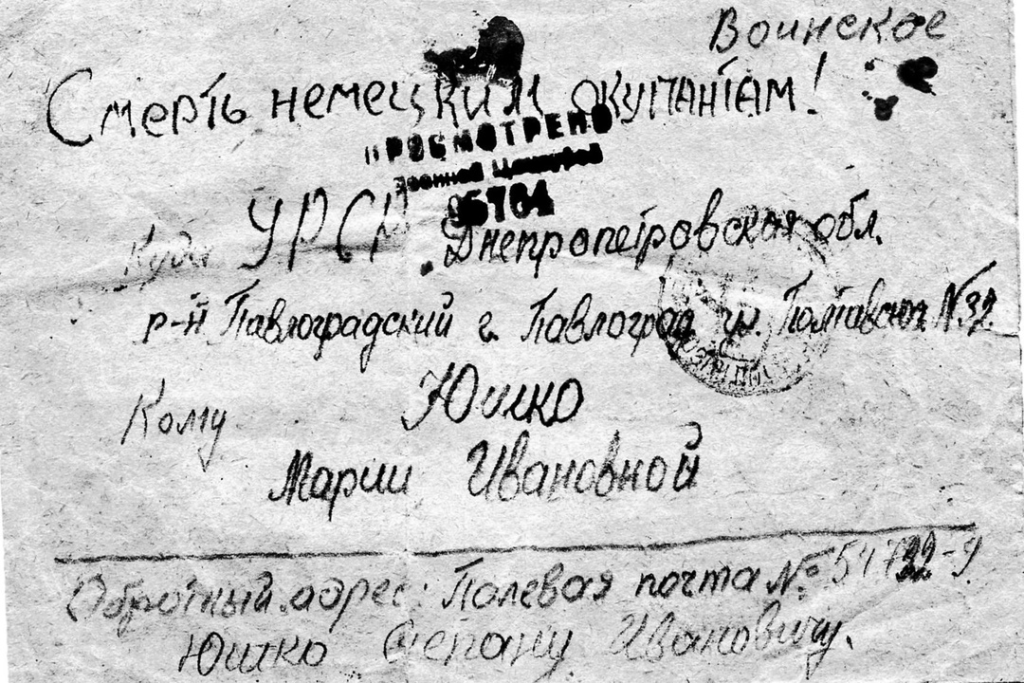 Воинское
Смерть немецким окупантам!
ПРОСМОТРЕНО
Военной Цензурой
Куда УРСР Днепропетровская обл.
р-н Павлоградский г. Павлоград ул. Полтавская №32
Кому Юшко
Марии Ивановной
Обратный адрес: Полевая почта №
Юшко Степану Ивановичу.